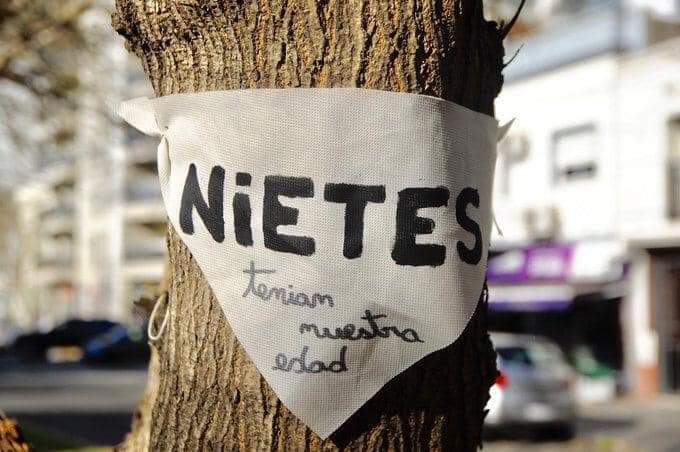 NiETES
tenian
nuestra
edad